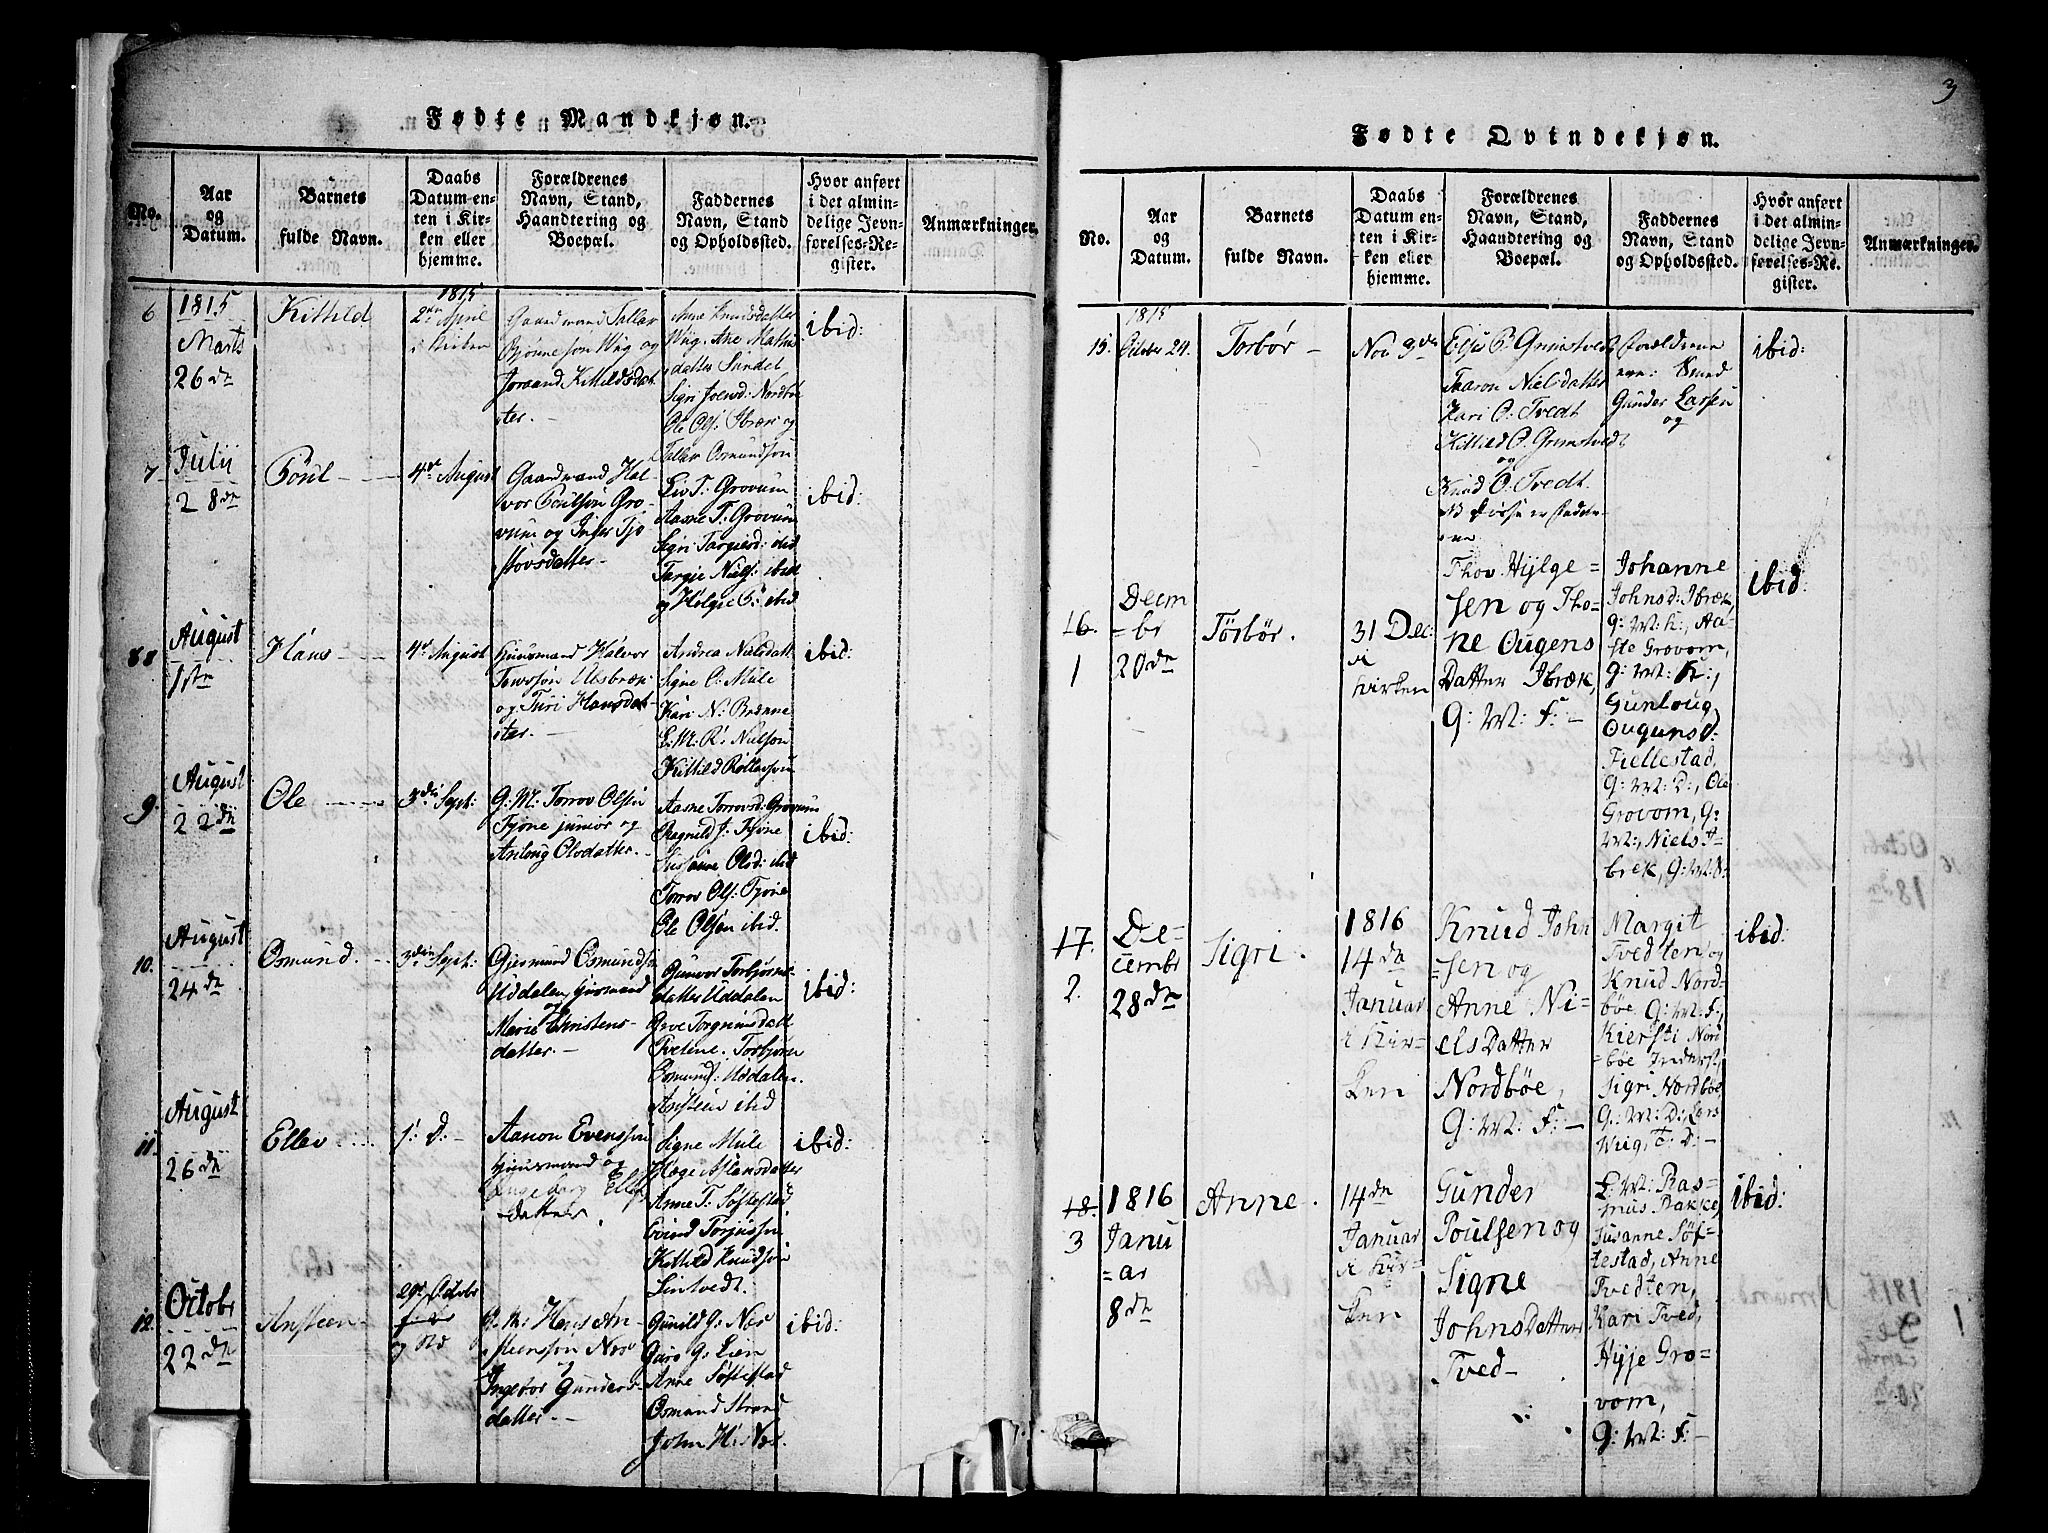 Fødte Mandkjøn.
No.
Aar
og
Datum.
Barnets
fulde Navn.
Daabs
Datum en-
ten i Kir-
ken eller
hjemme.
Forældrenes
Navn, Stand,
Haandtering og
Boepæl.
Faddernes
Navn, Stand
og Opholdssted.
Hvor anført
i det almin-
delige Jevn-
førelses-Re-
gister.
Anmærkninger.
6
1815
Marts
26 dn
Kittild
1815
2den April
i Kirken
Gaardmand Tallav
Bjønneson Wiig og
Joraand Kittildsdat
ter.
Anne Knudsdatter
Wiig, Ane Mathis
datter Sundet
Sigri Joensd: Nordbøe
Ole Ols: Ibræk og
Tallav Osmundson
ibid:
7
Julii
28 dn
Poul
4de August
Gaardmand Hal-
vor Poulson Gro-
vum og Inger Tjo
stovsdatter
Liv T: Grovum
Aasne T: Grovum
Sigri Targiesd: ibid
Targie Niels: ibid
og Helge O: ibid
ibid:
8
August
1ste
Hans
4de August
Huusmand Halvor
Tovsson Ulsbræk
og Turi Hansdat-
ter
Andrea Nielsdatt
Signe O: Mule
Kari N: Brenne
L: M: R: Nielson
Kittild Rollefson
ibid:
9.
August
22 dn
Ole
3die Sept:
G: M: Torrov Olsen
Tjøne junior og
Anloug Olsdatter.
Aasne Torrovsd: Grovum
Ragnild J: Tjøne
Susanne Olsd: ibid
Torrov Ols: Tjøne
Ole Olsen ibid.
ibid:
10.
August
24 dn
Osmund
3die Sept:
Gjermund Osmunds
Uddalen, Huusmand
og
Marie Christens-
datter.
Gunvor Torbjørns-
datter Uddalen
Gro Torgrimsdatt
Tvetene. Torbjørn
Osmund: Uddalen.
Ansteen ibid
ibid:
11
August
26 dn
Ellev
s: D:
Aanon Evensson
Huusmand og
Ingeborg Ellefs
datter.
Signe Mule
Hæge Aslansdatter
Anne T: Søftestad
Evind Torjusson
Kittild Knudson
Lintvedt.
ibid:
12.
October
22 dn
Ansteen
29de October
G. M: Hans An-
steensson Næs
og
Ingebor Gunders-
datter.
Gunild G: Næs
Guro G: Lien
Anne Søftestad
Osmund Strand
John H: Næs.
ibid:
3
Fødte Qvindekjøn.
No.
Aar
og
Datum.
Barnets
fulde Navn.
Daabs
Datum en-
ten i Kir-
ken eller
hjemme.
Forældrenes
Navn, Stand,
Haandtering og
Boepæl.
Faddernes
Navn, Stand
og Opholdssted.
Hvor anført
i det almin-
delige Jevn-
førelses-Re-
gister.
Anmærkninger.
15.
1815
October 24.
Torbør
Nov 9de
Eljs O. Grimstvedt
Aaron Nielsdatter
Kari O: Tvedt
Kittild O. Grimstvedt
og
Knud O: Tvedt
NB disse er Fadder-
ne
Forældrene
ere: Smed
Gunder Larsen
og
ibid:
16.
1
Decem
=br
20de
Torbør.
31 Dec:
i
Kirken
Thov Hylge=
sen og Tho-
ne Ougens
Datter Ibræk,
G: M: F: -
Johanne
Johnsd: Ibræk,
G: M: K:, Aa-
ste Grovom,
G: M: K:,
Gunloug
Ougunsd:
Fiellestad,
G: M: D:, Ole
Grovom, G:
M:, Niels I-
brek, G: M: S:
ibid:
17.
2.
De=
cembr
28 de
Sigri.
1816
14 de
Januar
i Kir=
ken
Knud John
=sen og
Anne Ni=
elsDatter
Nordbøe,
G: M: F: -
Margit
Tvedten, og
Knud Nord-
bøe G: M: F:,
Kiersti Nord
=bøe Inderst,
Sigri Nordbøe
G: M: D:, Lars
Wiig, T: D: -
ibid:
18.
3
1816
Janu
=ar
8 de
Anne.
14 de
Januar
i Kir=
ken
Gunder
Poulsen og
Signe
JohnsDatter
Tved-
G: M: Ras=
mus Bakke,
Susanne Søf=
testad, Anne
Tvedten,
Kari Tved,
Hyje Gro=
vom,
G: M: F: -
ibid: